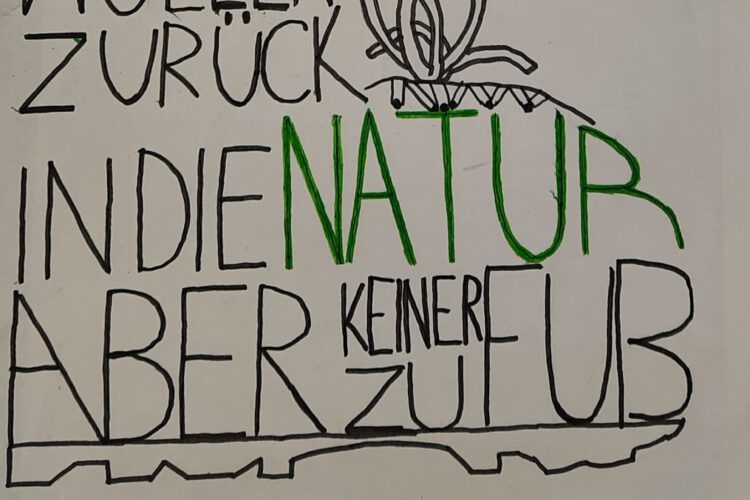 ZURÜCK
IN DIE NATUR
ABER KEINER ZU FUß